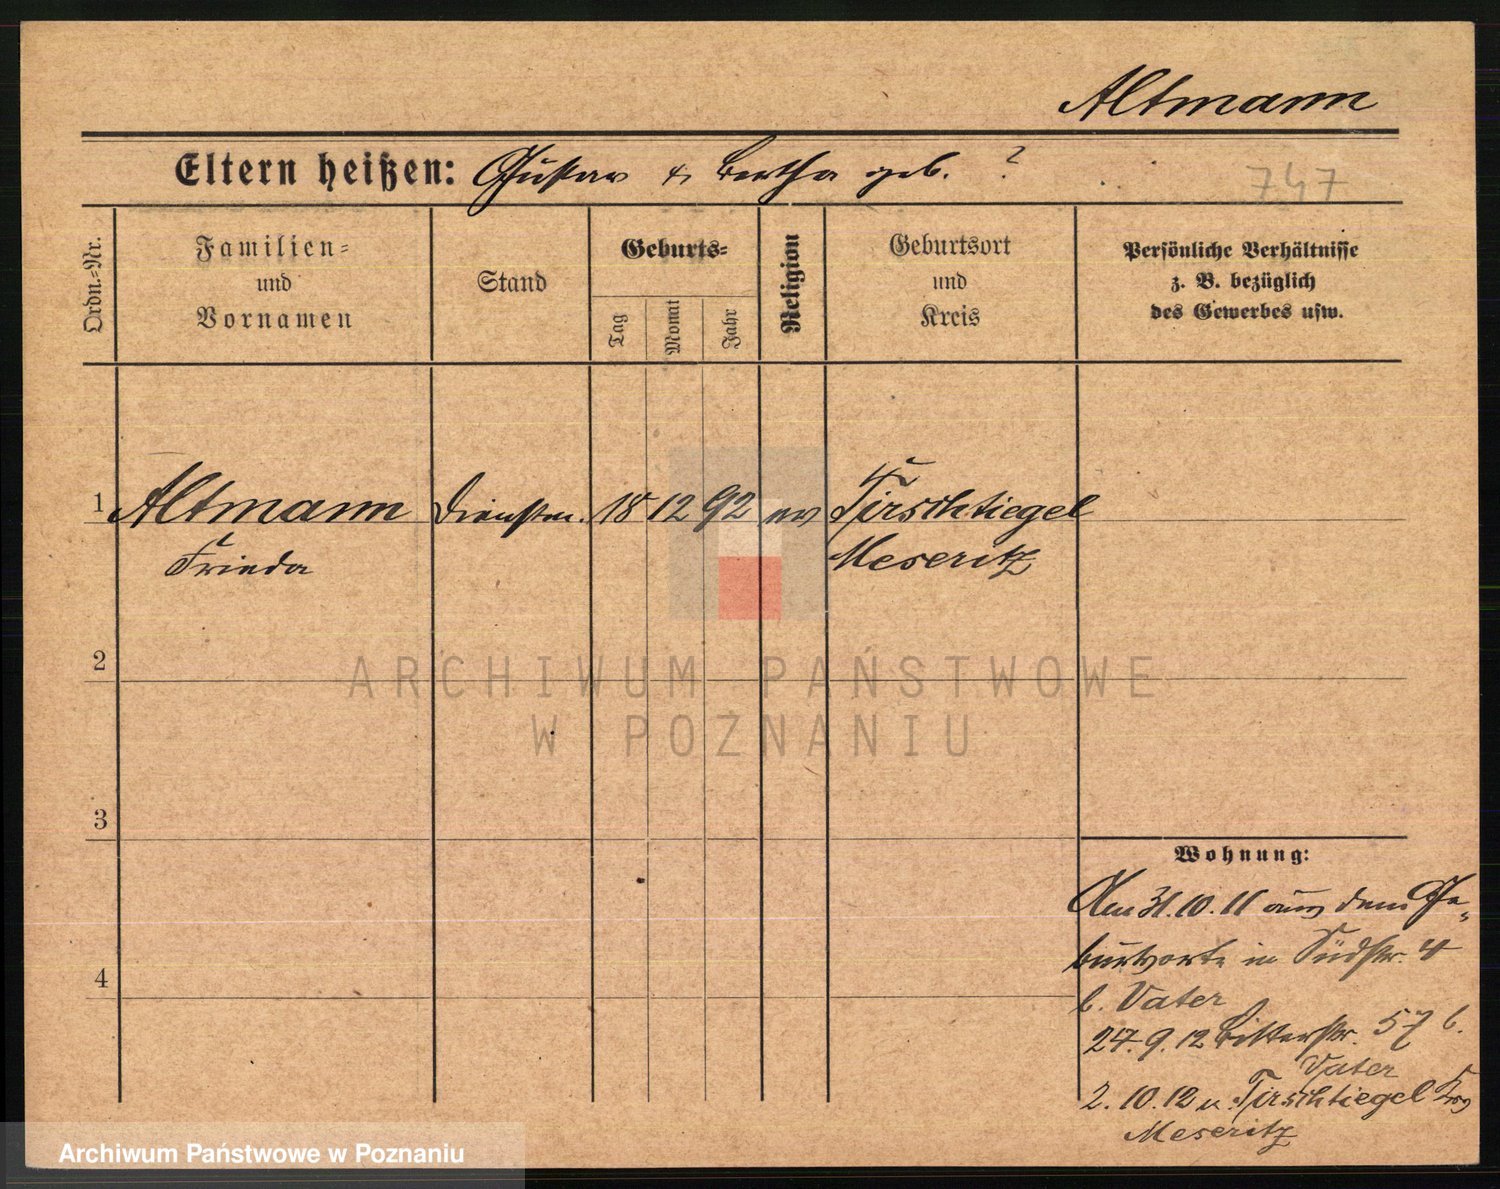 Altmann
Eltern heißen: Gustav & Bertha geb. ?
747
Ordn.=Nr.
Familien=
und
Vornamen
Stand
Geburts=
Tag
Monat
Jahr
Religion
Geburtsort
und
Kreis
Persönliche Verhältnisse
z. B. bezüglich
des Gewerbes usw.
1 Altmann Dienstm. 18 12 92 ev Tirschtiegel
Frieda Meseritz
2
ARCHIWUM PAŃSTWOWE
W POZNANIU
3
Wohnung:
Am 31.10.11 aus dem Ge=
burtsorte in Südstr. 4
4
b. Vater
24.9.12 Ritterstr. 37 b.
Vater
2.10.12 n. Tirschtiegel Krs
Meseritz
Archiwum Państwowe w Poznaniu